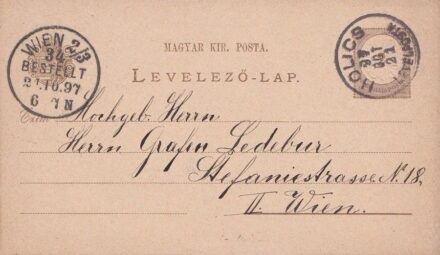 WIEN 2/3
BESTELLT
21.10.97
6 N
MAGYAR KIR. POSTA.
LEVELEZŐ-LAP.
HOLICS
97
OKT
21
Hochgeb. Herrn
Herrn Grafen Ledebur
Stefaniestrasse N. 18,
II Wien.